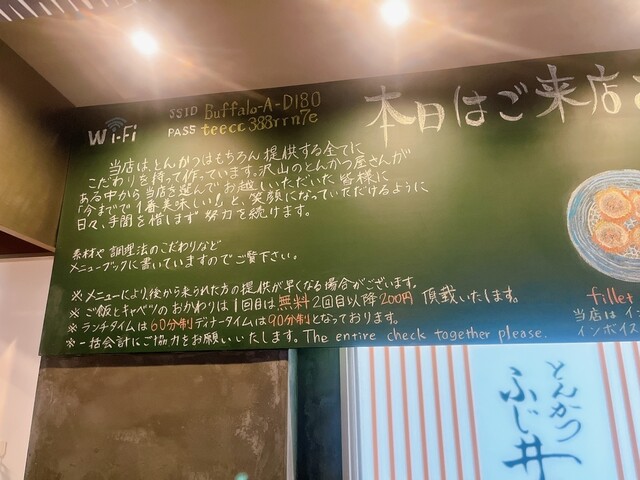 Wi-Fi
SSID Buffalo-A-D180
PASS teecc388rrn7e
本日はご来店
当店は、とんかつはもちろん提供する全てに
こだわりを持って作っています。沢山のとんかつ屋さんが
ある中から当店を選んでお越しいただいた皆様に
「今までで1番美味しい!」と、笑顔になっていただけるように
日々、手間を惜しまず努力を続けます。
素材や調理法のこだわりなど
メニューブックに書いていますのでご覧下さい。
※メニューにより、後から来られた方の提供が早くなる場合がございます。
※ご飯とキャベツのおかわりは1回目は無料2回目以降200円頂戴いたします。
※ランチタイムは60分制ディナータイムは90分制となっております。
※一括会計にご協力をお願いいたします。The entire check together please.
fillet
当店はイ
インボイス
とんかつ
ふじ井